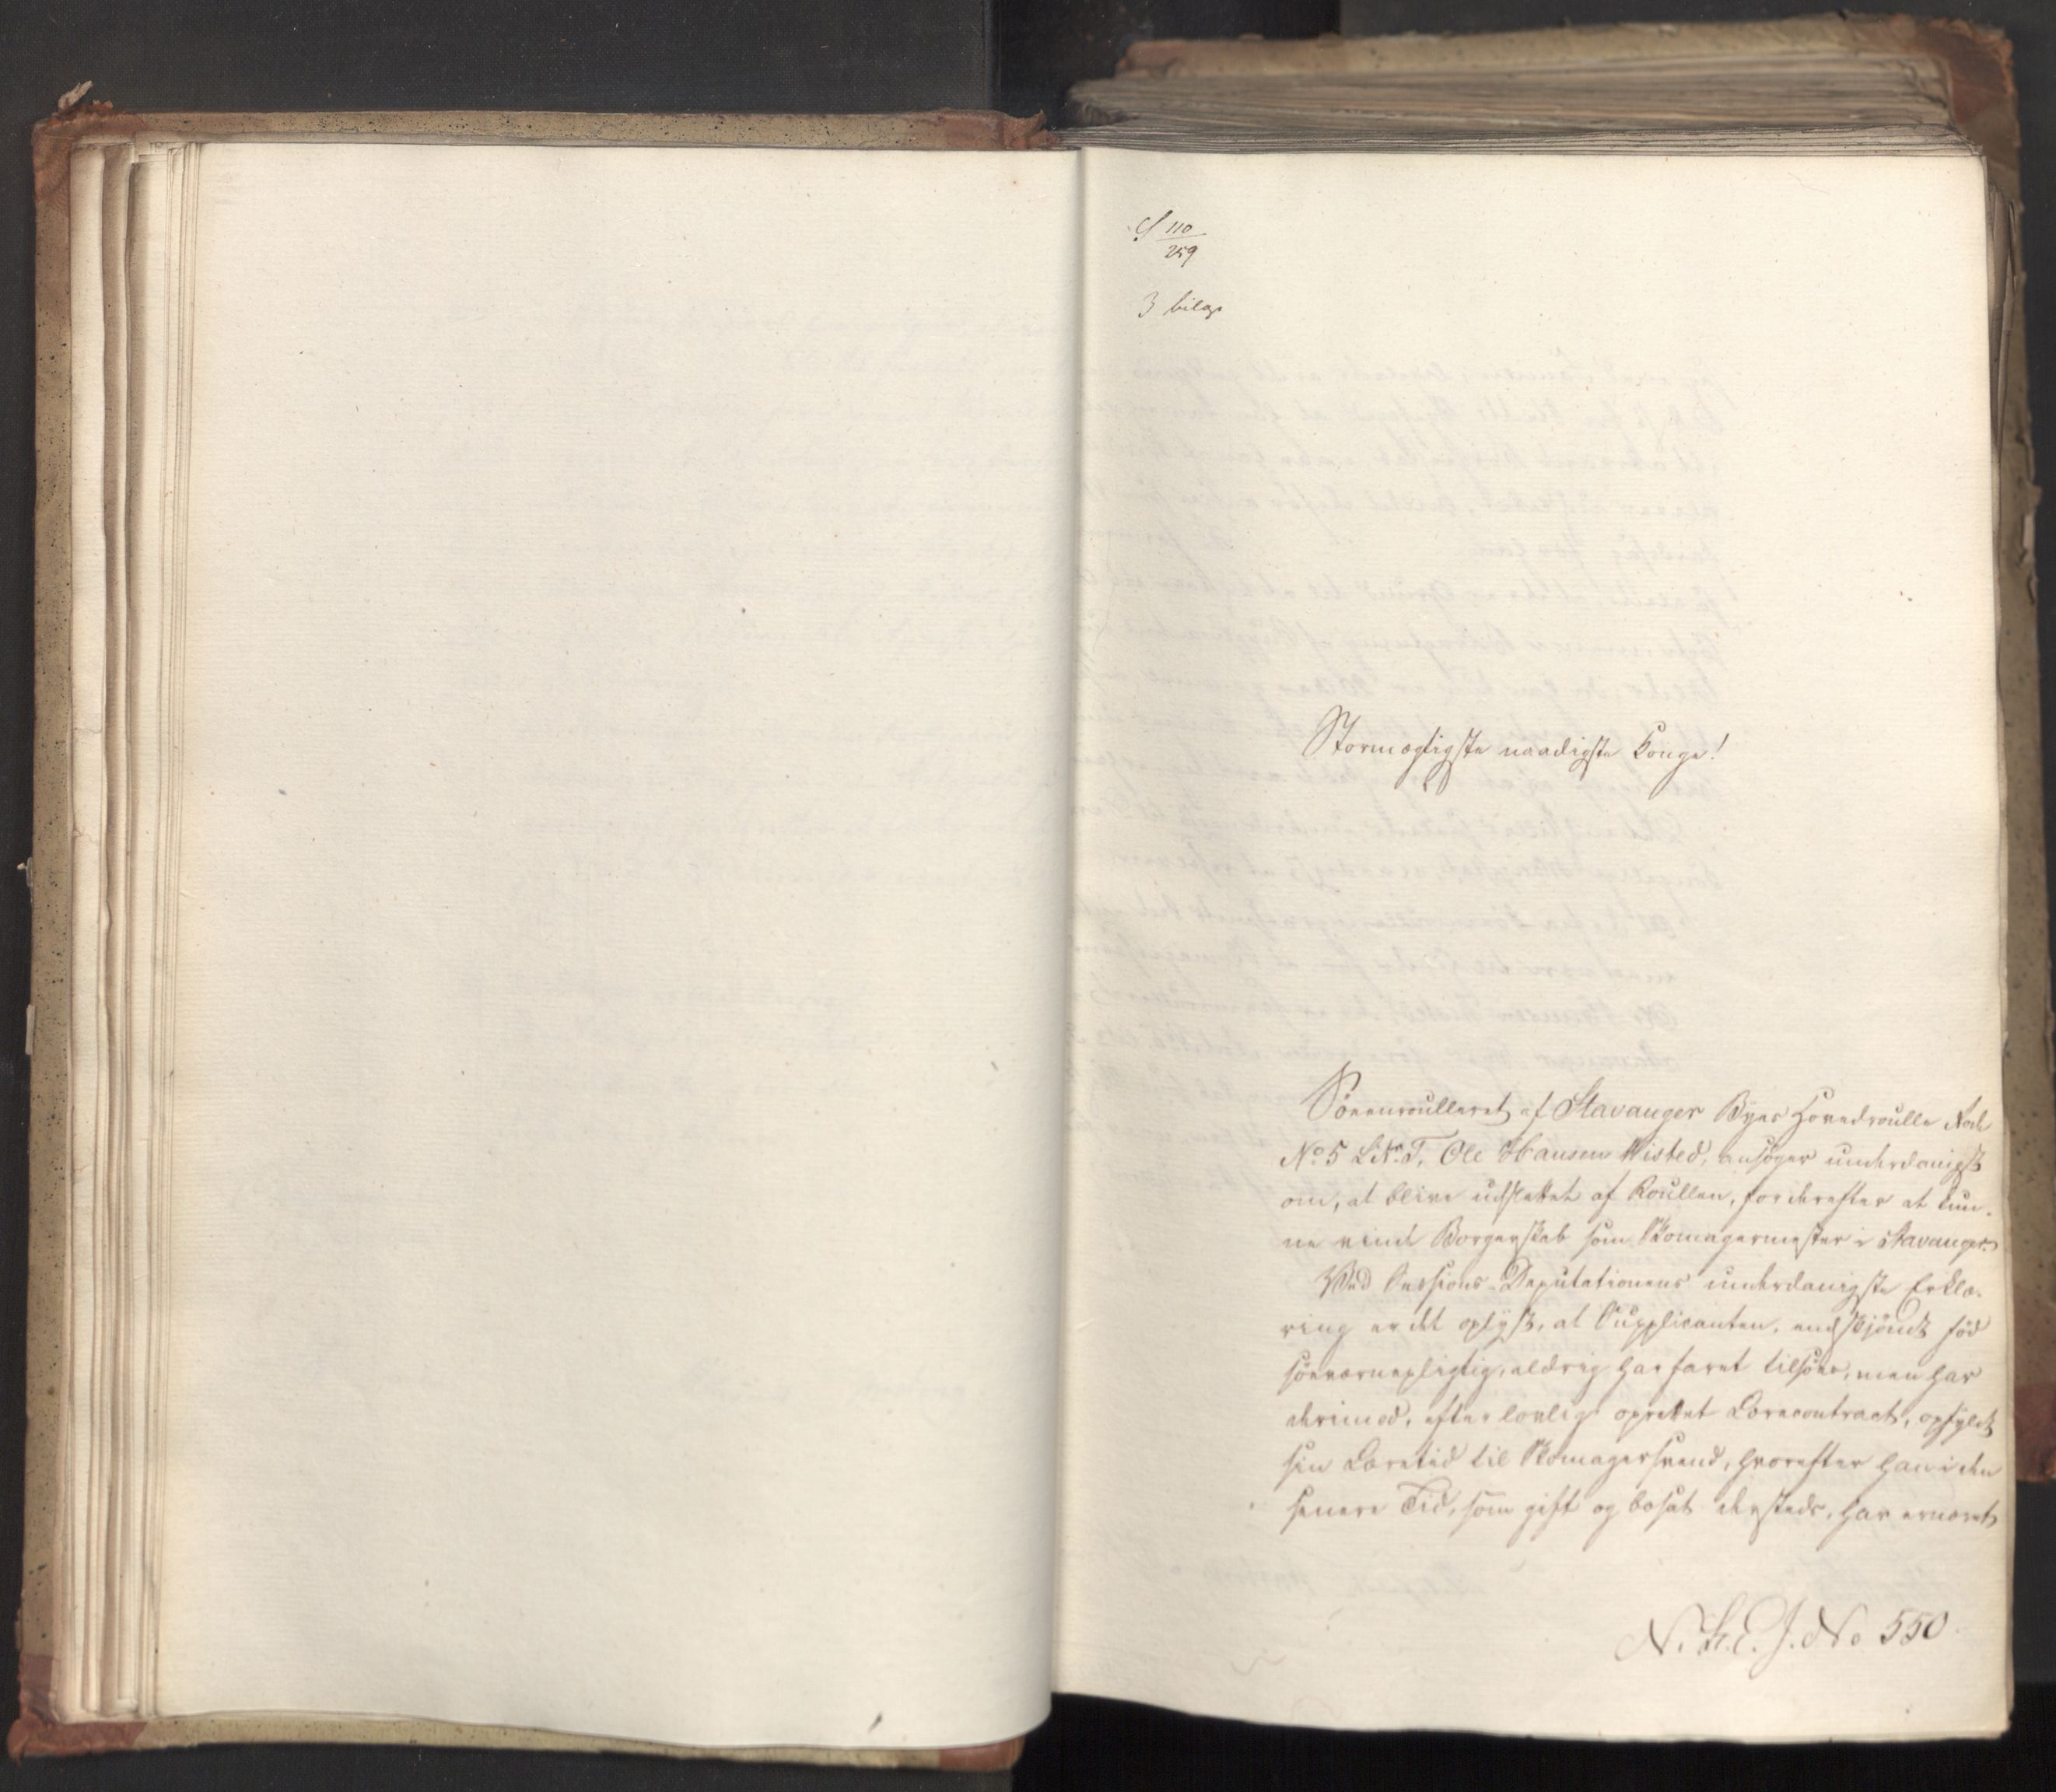 S 110/259
3 bilag
Stormægtigste naadigste Konge!
Søeenroulleret af Stavanger Byes Hovedroulle
No 5 Ole Hansen Misted, ansøger underdanigst
om, at blive udslettet af Roullen, for derefter at kun-
ne vinde Borgerskab som Skomagermester i Stavanger.
Ved Sessions-Deputationens underdanigste Erklæ-
ring er det oplyst, at Supplicanten, endskjøndt fød
søeværnepligtig, aldrig har faret tilsøes, men har
derimod, efter lovlig oprettet Lærecontract, opfyldt
sin Læretid til Skomagersvend, hvorefter han i den
senere Tid, som gift og bosat dersteds, har ernæret
N. J. No 550